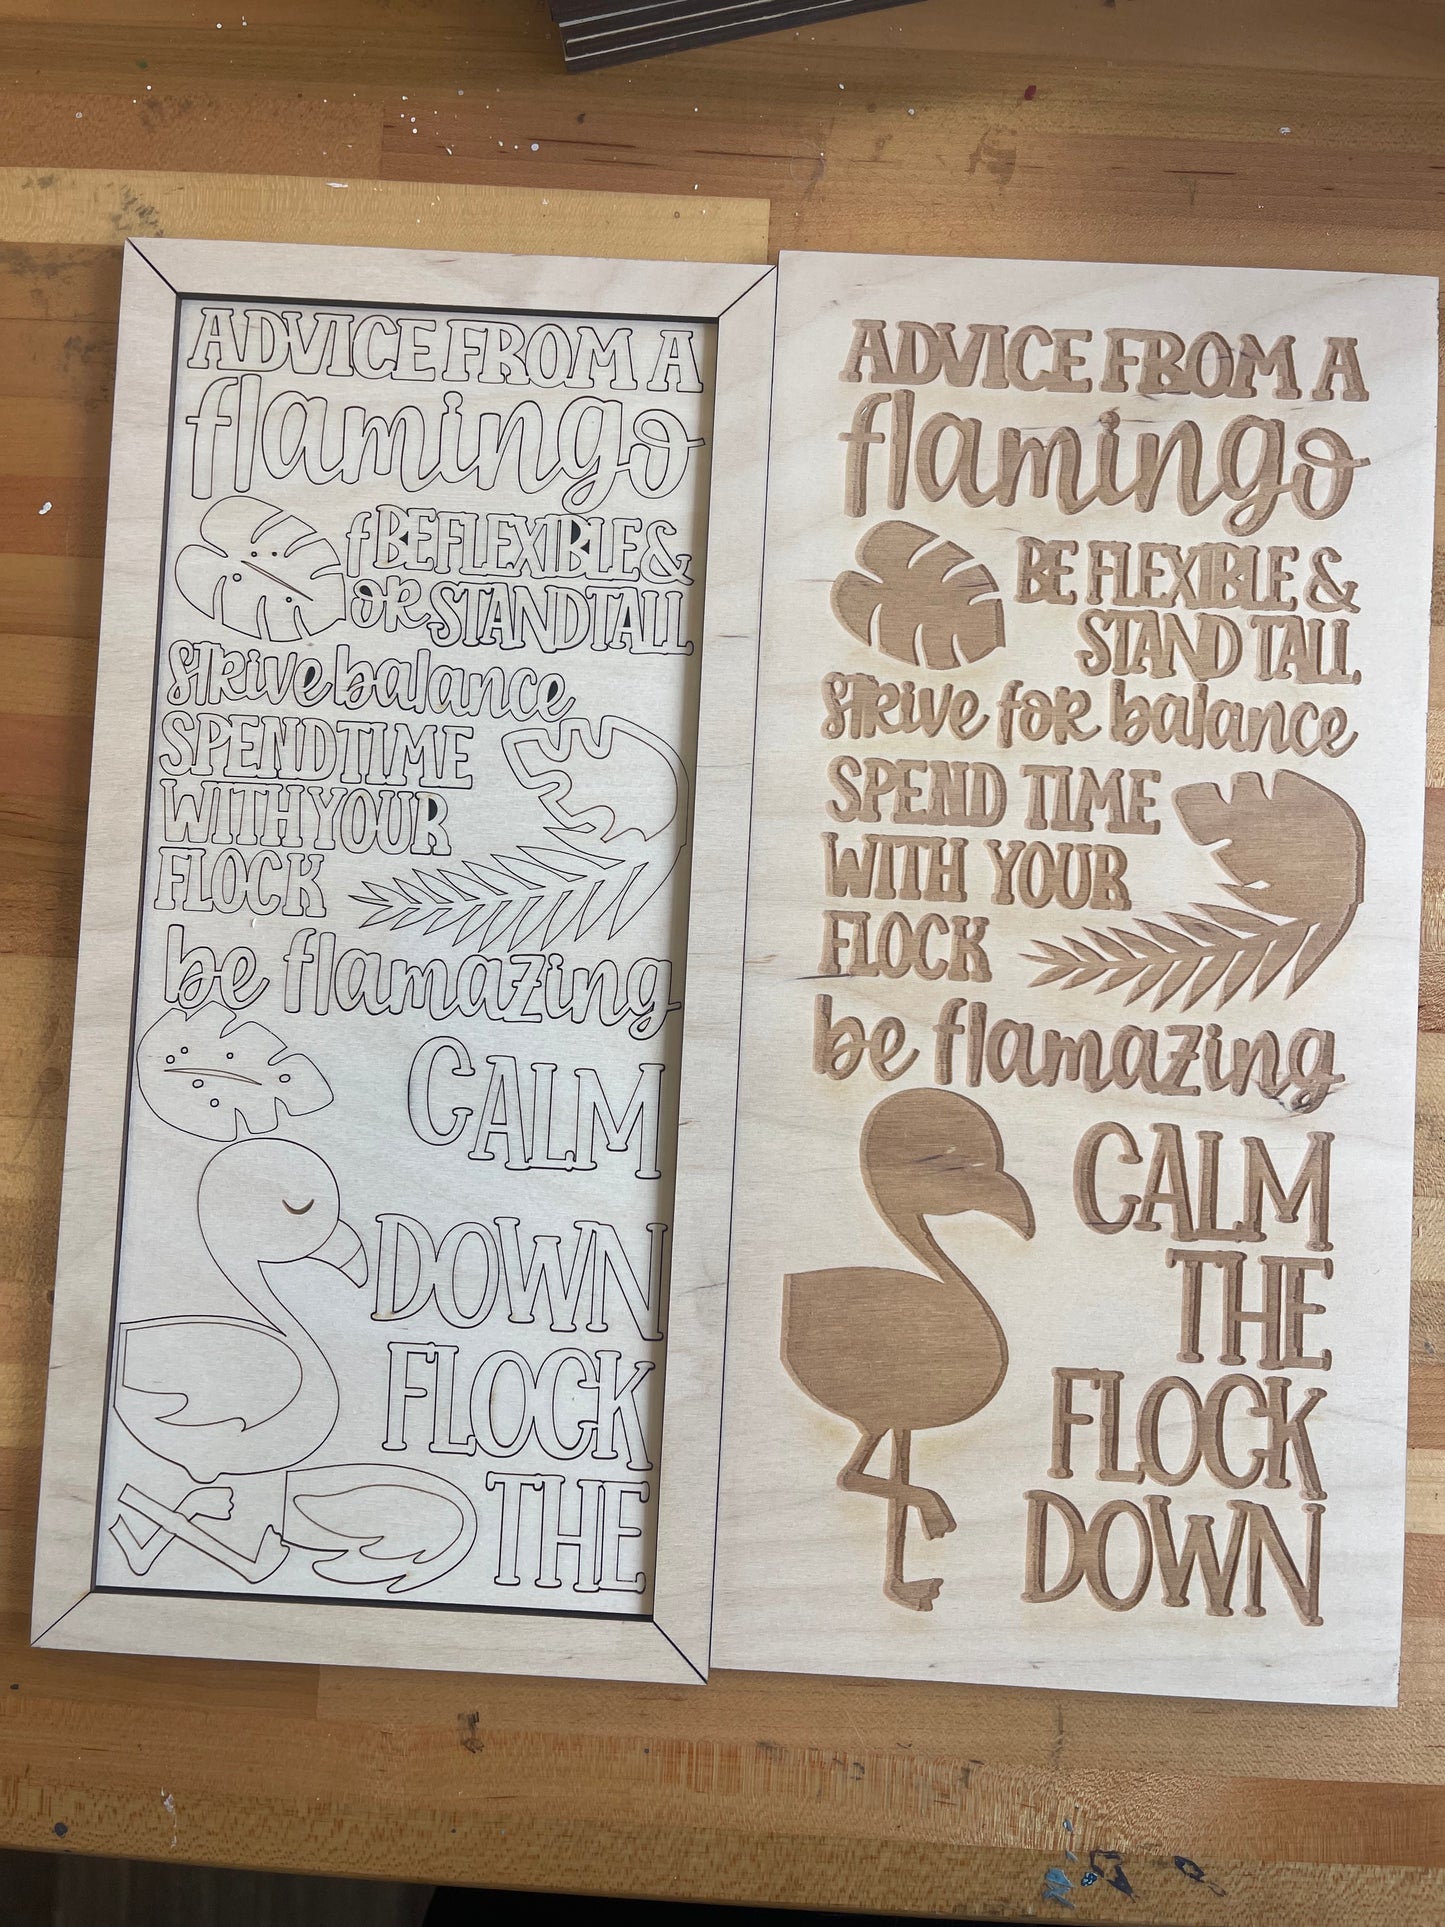 ADVICE FROM A
flamingo
f BE FLEXIBLE &
OR STAND TALL
STRIVE balance
SPEND TIME
WITH YOUR
FLOCK
be flamazing
CALM
DOWN
FLOCK
THE
ADVICE FROM A
flamingo
BE FLEXIBLE &
STAND TALL
STRIVE for balance
SPEND TIME
WITH YOUR
FLOCK
be flamazing
CALM
THE
FLOCK
DOWN